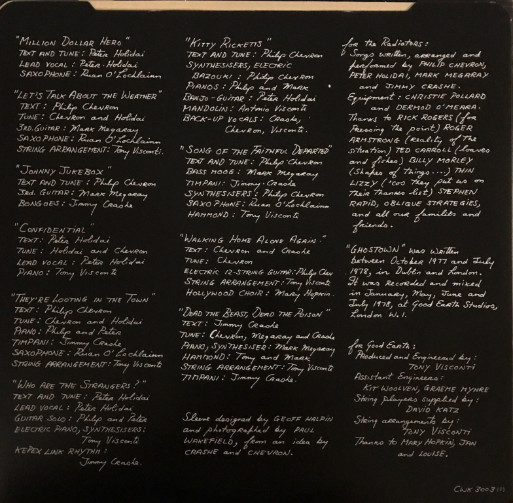 "MILLION DOLLAR HERO"
TEXT AND TUNE: Peter Holidai
LEAD VOCAL: Peter Holidai
SAXOPHONE: Ruan O'Lochlainn
"LET'S TALK ABOUT THE WEATHER"
TEXT: Philip Chevron
TUNE: Chevron and Holidai
3rd. GUITAR: Mark Megaray
SAXOPHONE: Ruan O'Lochlainn
STRING ARRANGEMENT: Tony Visconti.
"JOHNNY JUKEBOX"
TEXT AND TUNE: Philip Chevron
3rd. GUITAR: Mark Megaray
BONGOES: Jimmy Crashe
"CONFIDENTIAL"
TEXT: Peter Holidai
TUNE: Holidai and Chevron
LEAD VOCAL: Peter Holidai
PIANO: Tony Visconti
"THEY'RE LOOTING IN THE TOWN"
TEXT: Philip Chevron
TUNE: Chevron and Holidai
PIANO: Philip and Peter
TIMPANI: Jimmy Crashe
SAXOPHONE: Ruan O'Lochlainn
STRING ARRANGEMENT: Tony Visconti
"WHO ARE THE STRANGERS?"
TEXT AND TUNE: Peter Holidai
LEAD VOCAL: Peter Holidai
GUITAR SOLO: Philip and Peter
ELECTRIC PIANO, SYNTHESISERS:
Tony Visconti
KEPEX LINK RHYTHM:
Jimmy Crashe.
"KITTY RICKETTS"
TEXT AND TUNE: Philip Chevron
SYNTHESISERS, ELECTRIC
BAZOUKI: Philip Chevron
PIANOS: Philip and Mark
BANJO-GUITAR: Peter Holidai
MANDOLIN: Antonio Visconti
BACK-UP VOCALS: Crashe,
Chevron, Visconti.
"SONG OF THE FAITHFUL DEPARTED"
TEXT AND TUNE: Philip Chevron
BASS MOOG: Mark Megaray
TIMPANI: Jimmy Crashe
SYNTHESISERS: Philip Chevron
SAXOPHONE: Ruan O'Lochlainn
HAMMOND: Tony Visconti
"WALKING HOME ALONE AGAIN"
TEXT: Chevron and Crashe
TUNE: Chevron
ELECTRIC 12-STRING GUITAR: Philip Chev
STRING ARRANGEMENT: Tony Visconti
HOLLYWOOD CHOIR: Mary Hopkin.
"DEAD THE BEAST, DEAD THE POISON"
TEXT: Jimmy Crashe
TUNE: Chevron, Megaray and Crashe
PIANO, SYNTHESISER: Mark Megaray
HAMMOND: Tony and Mark
STRING ARRANGEMENT: Tony Visconti
TIMPANI: Jimmy Crashe.
Sleeve designed by GEOFF HALPIN
and photographed by PAUL
WAKEFIELD, from an idea by
CRASHE and CHEVRON.
for the Radiators:
Songs written, arranged and
performed by PHILIP CHEVRON,
PETER HOLIDAI, MARK MEGARAY
and JIMMY CRASHE.
Equipment: CHRISTIE POLLARD
and DERMOD O'MEARA.
Thanks to RICK ROGERS (for
seeing the point) ROGER
ARMSTRONG (reality of the
situation) TED CARROLL (loaves
and fishes) BILLY MORLEY
(Shapes of things...) THIN
LIZZY ('cos they put us on
their thanks list) STEPHEN
RAPID, OBLIQUE STRATEGIES,
and all our families and
friends.
"GHOSTOWN" was written
between October 1977 and July
1978, in Dublin and London.
It was recorded and mixed
in January, May, June and
July 1978, at Good Earth Studios,
London W.1.
for Good Earth:
Produced and Engineered by:
TONY VISCONTI
Assistant Engineers:
KIT WOOLVEN, GRAEME MYHRE
String players supplied by:
DAVID KATZ
String arrangements by:
TONY VISCONTI
Thanks to MARY HOPKIN, JAN
and LOUISE.